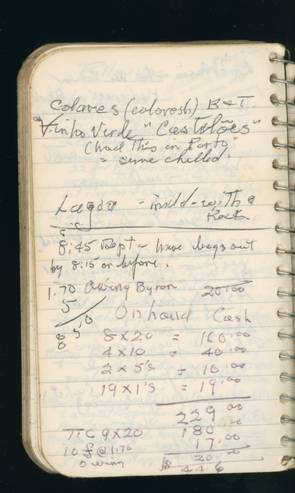 Colares (colorosh) B & T.
Vinho Verde "Castelões"
(had this in Porto
= serve chilled.
Lagoa - mild - with a
8:45 - have bags out
by 8:15 or before.
1.70 Owing Byron 20.00
5
On hand Cash
8 x 20 = 160.00
4 x 10 = 40.00
2 x 5's = 10.00
19 x 1's = 19.00
229.00
T-C 9 x 20 180.00
10 £ @ 1.70 17.00
Owing 20.00
$ 446